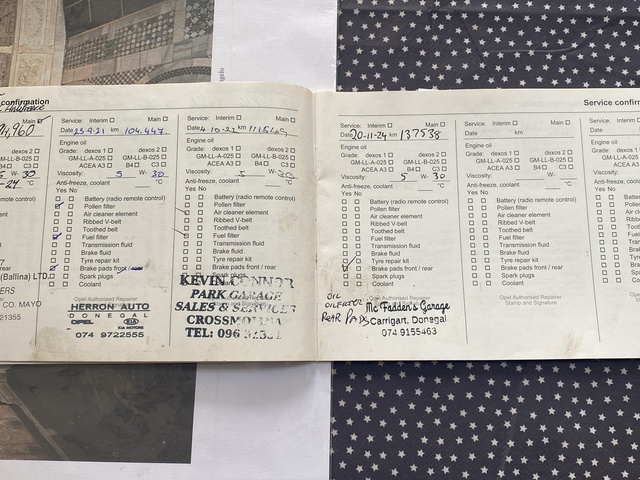 confirmation
Main
94,960
Engine oil
dexos 2
GM-LL-B-025
C3
W- 30
-24 °C
mote control)
rear
(Ballina) LTD.
ERS
CO. MAYO
21355
Service: Interim Main
Date 23.9.21 km 104.447
Engine oil
Grade: dexos 1 dexos 2
GM-LL-A-025 GM-LL-B-025
ACEA A3 B4 C3
Viscosity: 5 W- 30
Anti-freeze, coolant °C
Yes No
Battery (radio remote control)
Pollen filter
Air cleaner element
Ribbed V-belt
Toothed belt
Fuel filter
Transmission fluid
Brake fluid
Tyre repair kit
Brake pads front / rear
Spark plugs
Coolant
Opel Authorised Repairer
HERRON AUTO
DONEGAL
OPEL KIA
KIA MOTORS
074 9722555
Service: Interim Main
Date 4.10.22 km
Engine oil
Grade: dexos 1 dexos 2
GM-LL-A-025 GM-LL-B-025
ACEA A3 B4 C3
Viscosity: 5 W- 30
Anti-freeze, coolant °C
Yes No
Battery (radio remote control)
Pollen filter
Air cleaner element
Ribbed V-belt
Toothed belt
Fuel filter
Transmission fluid
Brake fluid
Tyre repair kit
Brake pads front / rear
Spark plugs
KEVIN CONNOR
PARK GARAGE
SALES & SERVICE
CROSSMOLINA
TEL: 096
Service confir
Service: Interim Main
Date 20-11-24 km 137538
Engine oil
Grade: dexos 1 dexos 2
GM-LL-A-025 GM-LL-B-025
ACEA A3 B4 C3
Viscosity: 5 W- 30
Anti-freeze, coolant °C
Yes No
Battery (radio remote control)
Pollen filter
Air cleaner element
Ribbed V-belt
Toothed belt
Fuel filter
Transmission fluid
Brake fluid
Tyre repair kit
Brake pads front / rear
Spark plugs
Coolant
OIL
REAR PADS
Opel Authorised Repairer
Mc Fadden's Garage
Carrigart, Donegal
074 9155463
Service: Interim Main
Date km
Engine oil
Grade: dexos 1 dexos 2
GM-LL-A-025 GM-LL-B-025
ACEA A3 B4 C3
Viscosity: W-
Anti-freeze, coolant °C
Yes No
Battery (radio remote control)
Pollen filter
Air cleaner element
Ribbed V-belt
Toothed belt
Fuel filter
Transmission fluid
Brake fluid
Tyre repair kit
Brake pads front / rear
Spark plugs
Coolant
Opel Authorised Repairer
Stamp and Signature
Service: In
Date
Engine oil
Grade:
GM-LL-A
ACE
Viscosity:
Anti-freeze, co
Yes No
Battery
Pollen
Air cle
Ribbed
Toothe
Fuel fi
Transm
Brake
Tyre re
Brake
Spark
Coola